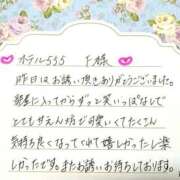 ホテル555 F様
昨日はお誘い頂きありがとうございました。
部屋に入ってからずっと笑いっぱなしで
とてもせえん坊で可愛くてたくさん
気持ち良くなってくれて嬉しかったし楽
しかったです。またお誘いお待ちしております。